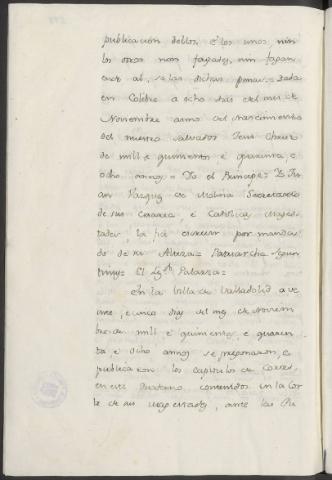 publicacion dellos, é los unos, nin
los otros non fagades, nin fagan
ende al, so las dichas penas. Dada
en Colibre a ocho dias del mes de
Noviembre anno del nascimiento
del nuestro Salvador Jesu Christo
de mill é quinientos é quarenta, e
ocho annos = Yo el Principe = Yo Ju
an Vazquez de Molina Secretario
de sus Cesarea, é Catolicas Mages
tades, la fiz escrevir por manda
do de su Alteza = Patriarcha Segun
tinus = El Lizdo Galarza =
En la Villa de Valladolid a ve
inte, e cinco dias del mes de Noviem
bre de mill é quinientos, é quaren
ta é ocho annos se pregonaron, é
publicaron los capitulos de Cortes,
en este Quaderno contenidos en la Cor
te de sus Magestades, ante las Pu